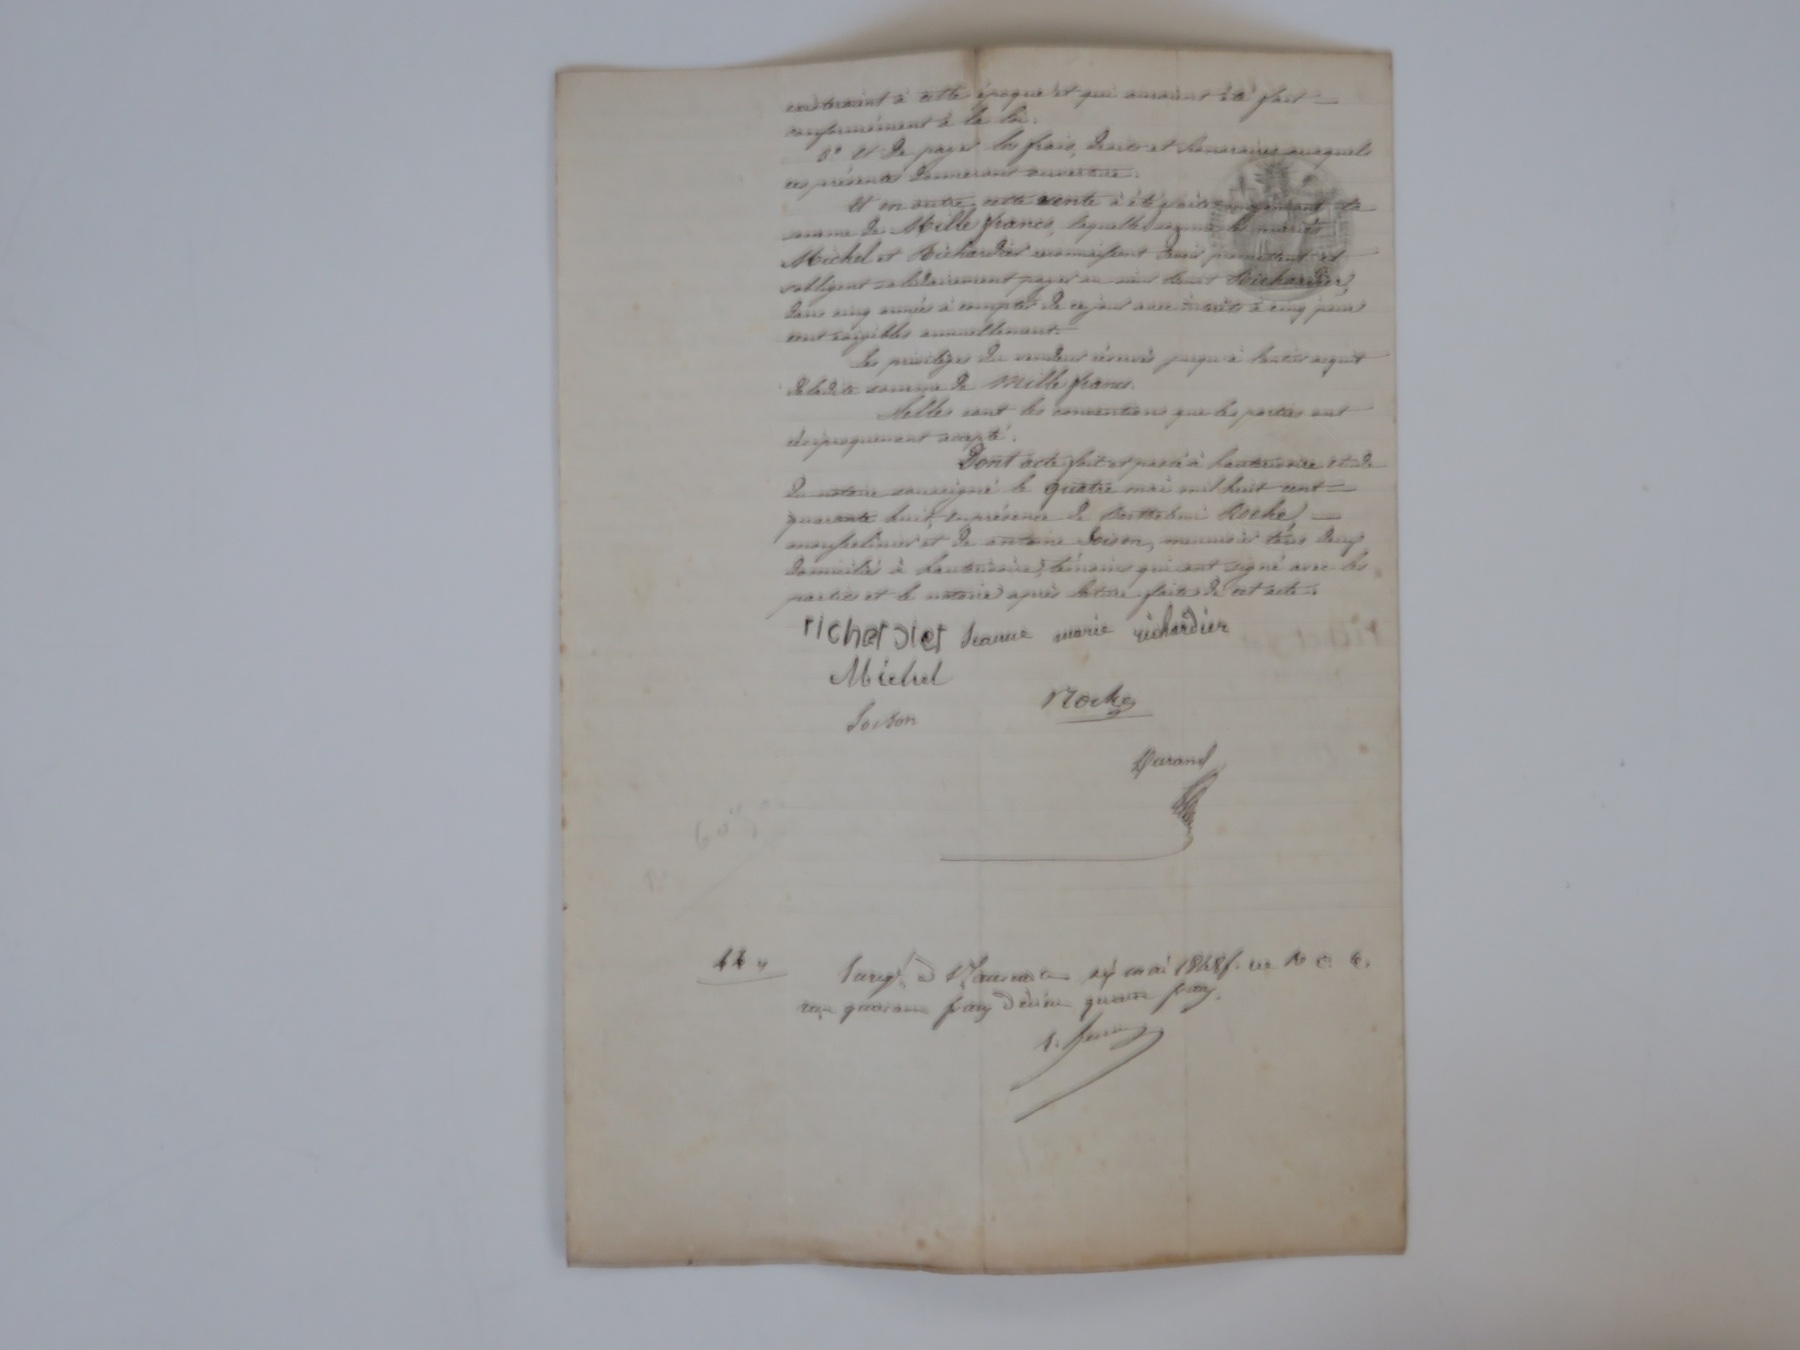 existeraient à cette époque et qui auraient été fait
conformément à la loi.
8° Et de payer les frais, droits et honoraires auxquels
ces présentes donneront ouverture.
Et en outre cette vente à été faite moyennant la
somme de Mille francs, laquelle somme les mariés
Michel et Richardier reconnaissent devoir promettent et
s'obligent solidairement payer au sieur Richardier,
dans cinq années à compter de ce jour avec intérêts à cinq pour
cent exigibles annuellement.
Les privilèges du vendeur réservés jusqu'à l'entier acquit
de ladite somme de Mille francs.
Telles sont les conventions que les parties ont
réciproquement accepté.
Dont acte fait et passé à étude
du notaire soussigné le quatre mai mil huit cent
quarante huit, en présence de Roche
et de antoine Soison, menuisier tous deux
domiciliés à témoins qui ont signé avec les
parties et le notaire après lecture faite de cet acte.
richerdier Jeanne marie richardier
Michel
Soison Roche
Durand
44 "
mai 1848 f.
quarante francs quatre francs